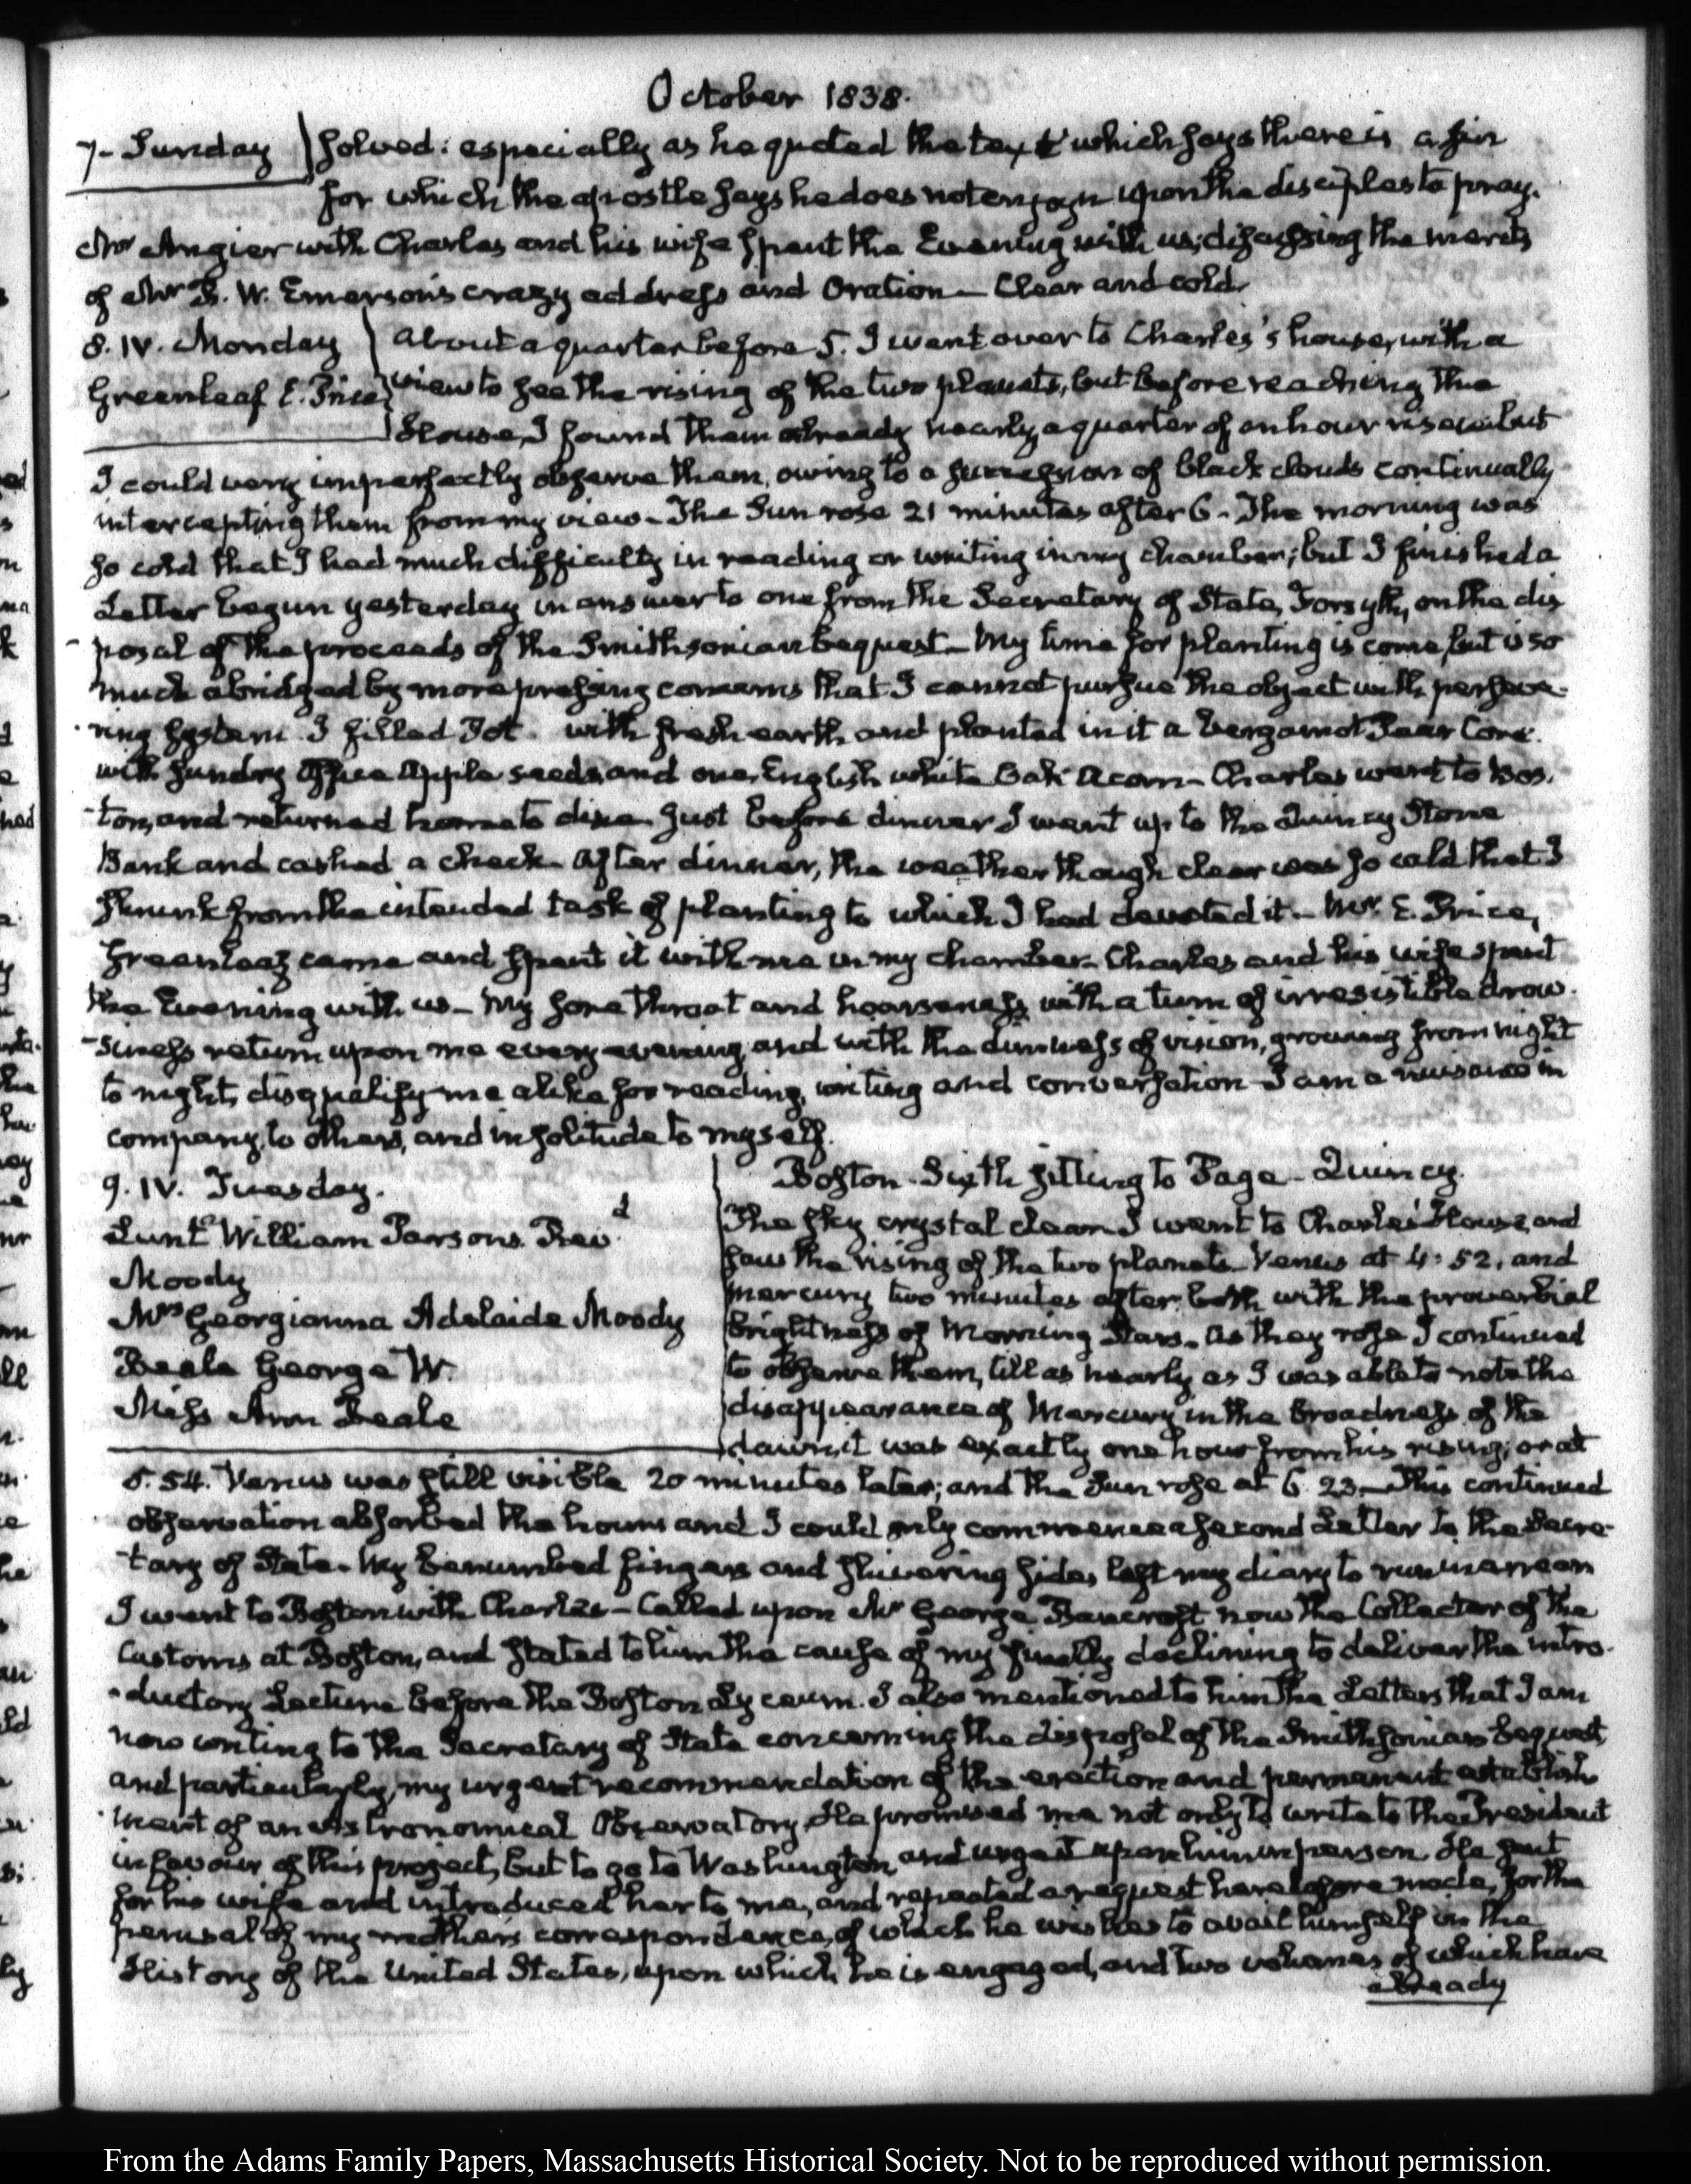 October 1838.
7- Sunday
solved: especially as he quoted the text which says there is a sin
for which the apostle says he does not enjoyn upon the disciples to pray.
Mr Angier with Charles and his wife spent the Evening with us; discussing the merits
of Mr R. W. Emerson's crazy address and Oration — Clear and cold.
8. IV. Monday
Greenleaf E. Price
About a quarter before 5. I went over to Charles's house, with a
view to see the rising of the two planets, but before reaching the
House, I found them already nearly a quarter of an hour risen but
I could very imperfectly observe them, owing to a succession of black clouds continually
intercepting them from my view — The Sun rose 21 minutes after 6 - The morning was
so cold that I had much difficulty in reading or writing in my chamber; but I finished a
Letter begun yesterday in answer to one from the Secretary of State, Forsyth, on the dis
-posal of the proceeds of the Smithsonian bequest — My time for planting is come, but is so
much abridged by more pressing concerns that I cannot pursue the object with perseve-
-ring system I filled Pot with fresh earth and planted in it a bergamot Pear Core
with sundry Apple seeds and one English white Oak Acorn — Charles went to Bos-
-ton, and returned home to dine Just before dinner I went up to the Quincy Stone
Bank and cashed a check. After dinner, the weather though clear was so cold that I
shrunk from the intended task of planting to which I had devoted it — Mr. E. Price,
Greenleaf came and spent it with me in my chamber — Charles and his wife spent
the Evening with us — My sore throat and hoarseness with a turn of irresistible drow-
-siness return upon me every evening, and with the dimness of vision, growing from night
to night, disqualify me alike for reading, writing and conversation — I am a nuisance in
company, to others, and in solitude to myself.
9. IV. Tuesday.
Lunt William Parsons. Revd
Moody
Mrs Georgianna Adelaide Moody
Beale George W.
Miss Ann Beale
Boston - Sixth sitting to Page - Quincy.
The sky crystal clear I went to Charles' House, and
saw the rising of the two planets Venus at 4:52, and
Mercury two minutes after: both with the proverbial
brightness of Morning Stars. As they rose I continued
to observe them, till as nearly as I was able to note the
disappearance of Mercury in the broadness of the
dawn, it was exactly one hour from his rising; or at
5.54. Venus was still visible 20 minutes later; and the Sun rose at 6 23 — This continued
observation absorbed the hours and I could only commence a second Letter to the Secre-
-tary of State. My benumbed fingers and shivering sides left my diary to run in arrear
I went to Boston with Charles — Called upon Mr George Bancroft now the Collector of the
Customs at Boston, and stated to him the cause of my finally declining to deliver the intro-
-ductory Lecture before the Boston Lyceum. I also mentioned to him the Letters that I am
now writing to the Secretary of State concerning the disposal of the Smithsonian bequest,
and particularly, my urgent recommendation of the erection and permanent establish
-ment of an Astronomical Observatory He promised me not only to write to the President
in favour of this project, but to go to Washington and urge it upon him in person. He sent
for his wife and introduced her to me, and repeated a request heretofore made, for the
perusal of my mother's correspondence, of which he wishes to avail himself in the
History of the United States, upon which he is engaged, and two volumes of which have
already
From the Adams Family Papers, Massachusetts Historical Society. Not to be reproduced without permission.